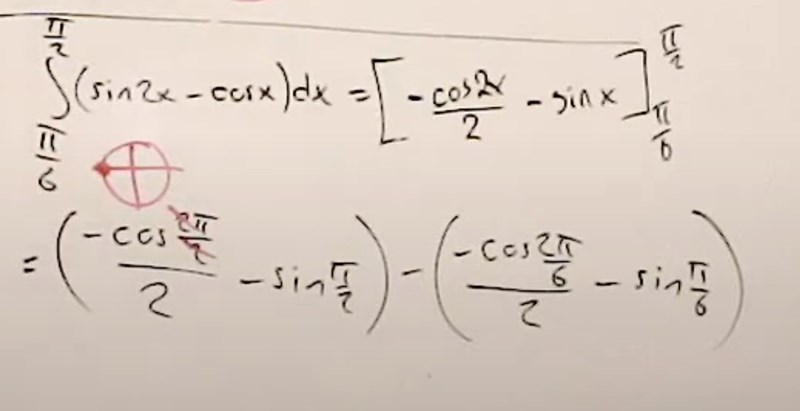 ∫_{π/6}^{π/2} (sin2x - cosx)dx = [-cos2x/2 - sinx]_{π/6}^{π/2}
= (-cos(2π/2)/2 - sin π/2) - (-cos(2π/6)/2 - sin π/6)